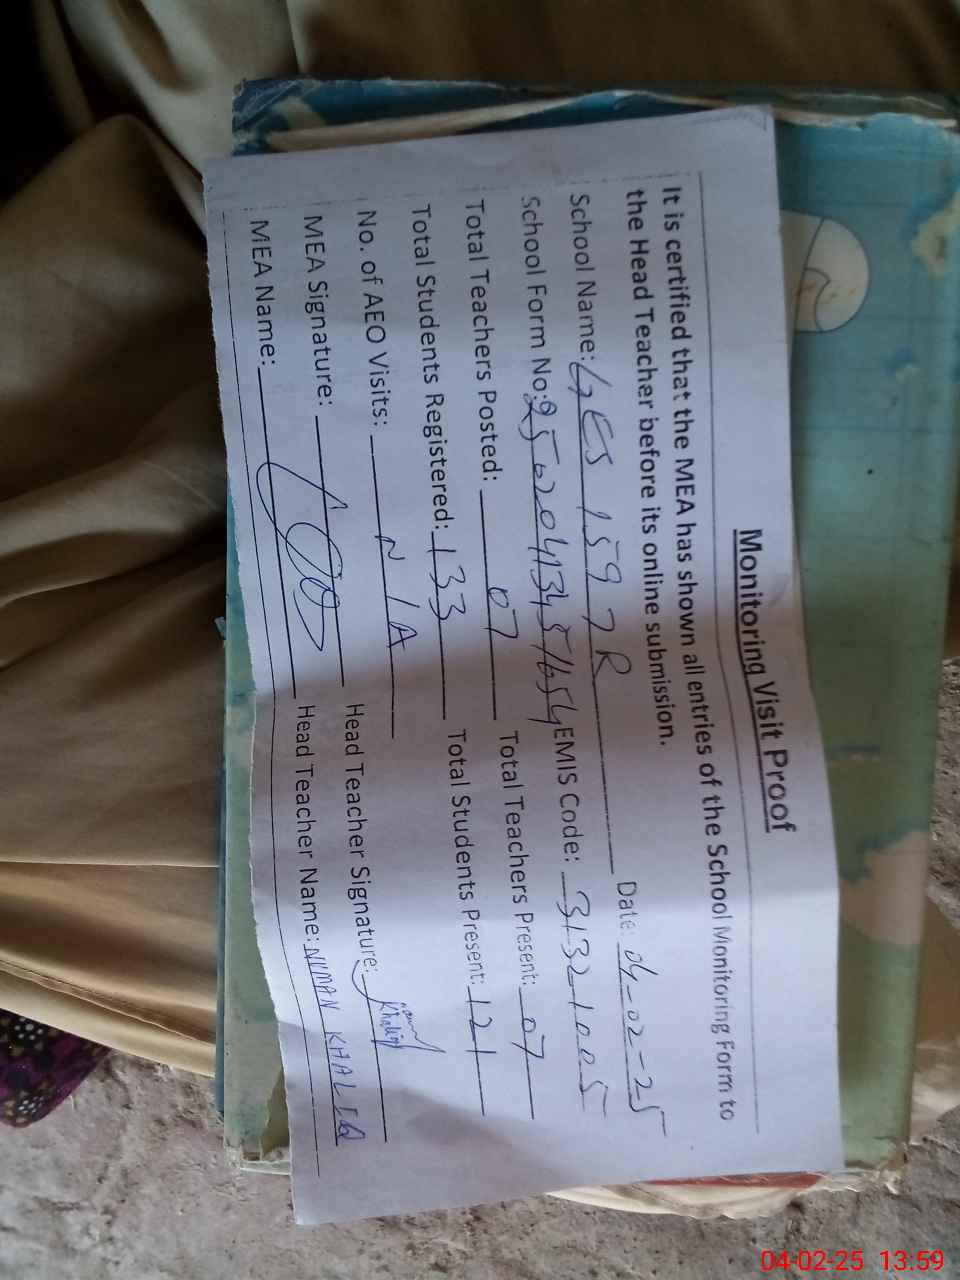 Monitoring Visit Proof
It is certified that the MEA has shown all entries of the School Monitoring Form to
the Head Teacher before its online submission.
School Name: GES 159 7R Date: 04-02-25
School Form No: EMIS Code: 31321005
Total Teachers Posted: 07 Total Teachers Present: 07
Total Students Registered: 133 Total Students Present: 121
No. of AEO Visits: N/A
MEA Signature: Head Teacher Signature:
MEA Name: Head Teacher Name: NUMAN KHALIQ
04-02-25 13:59